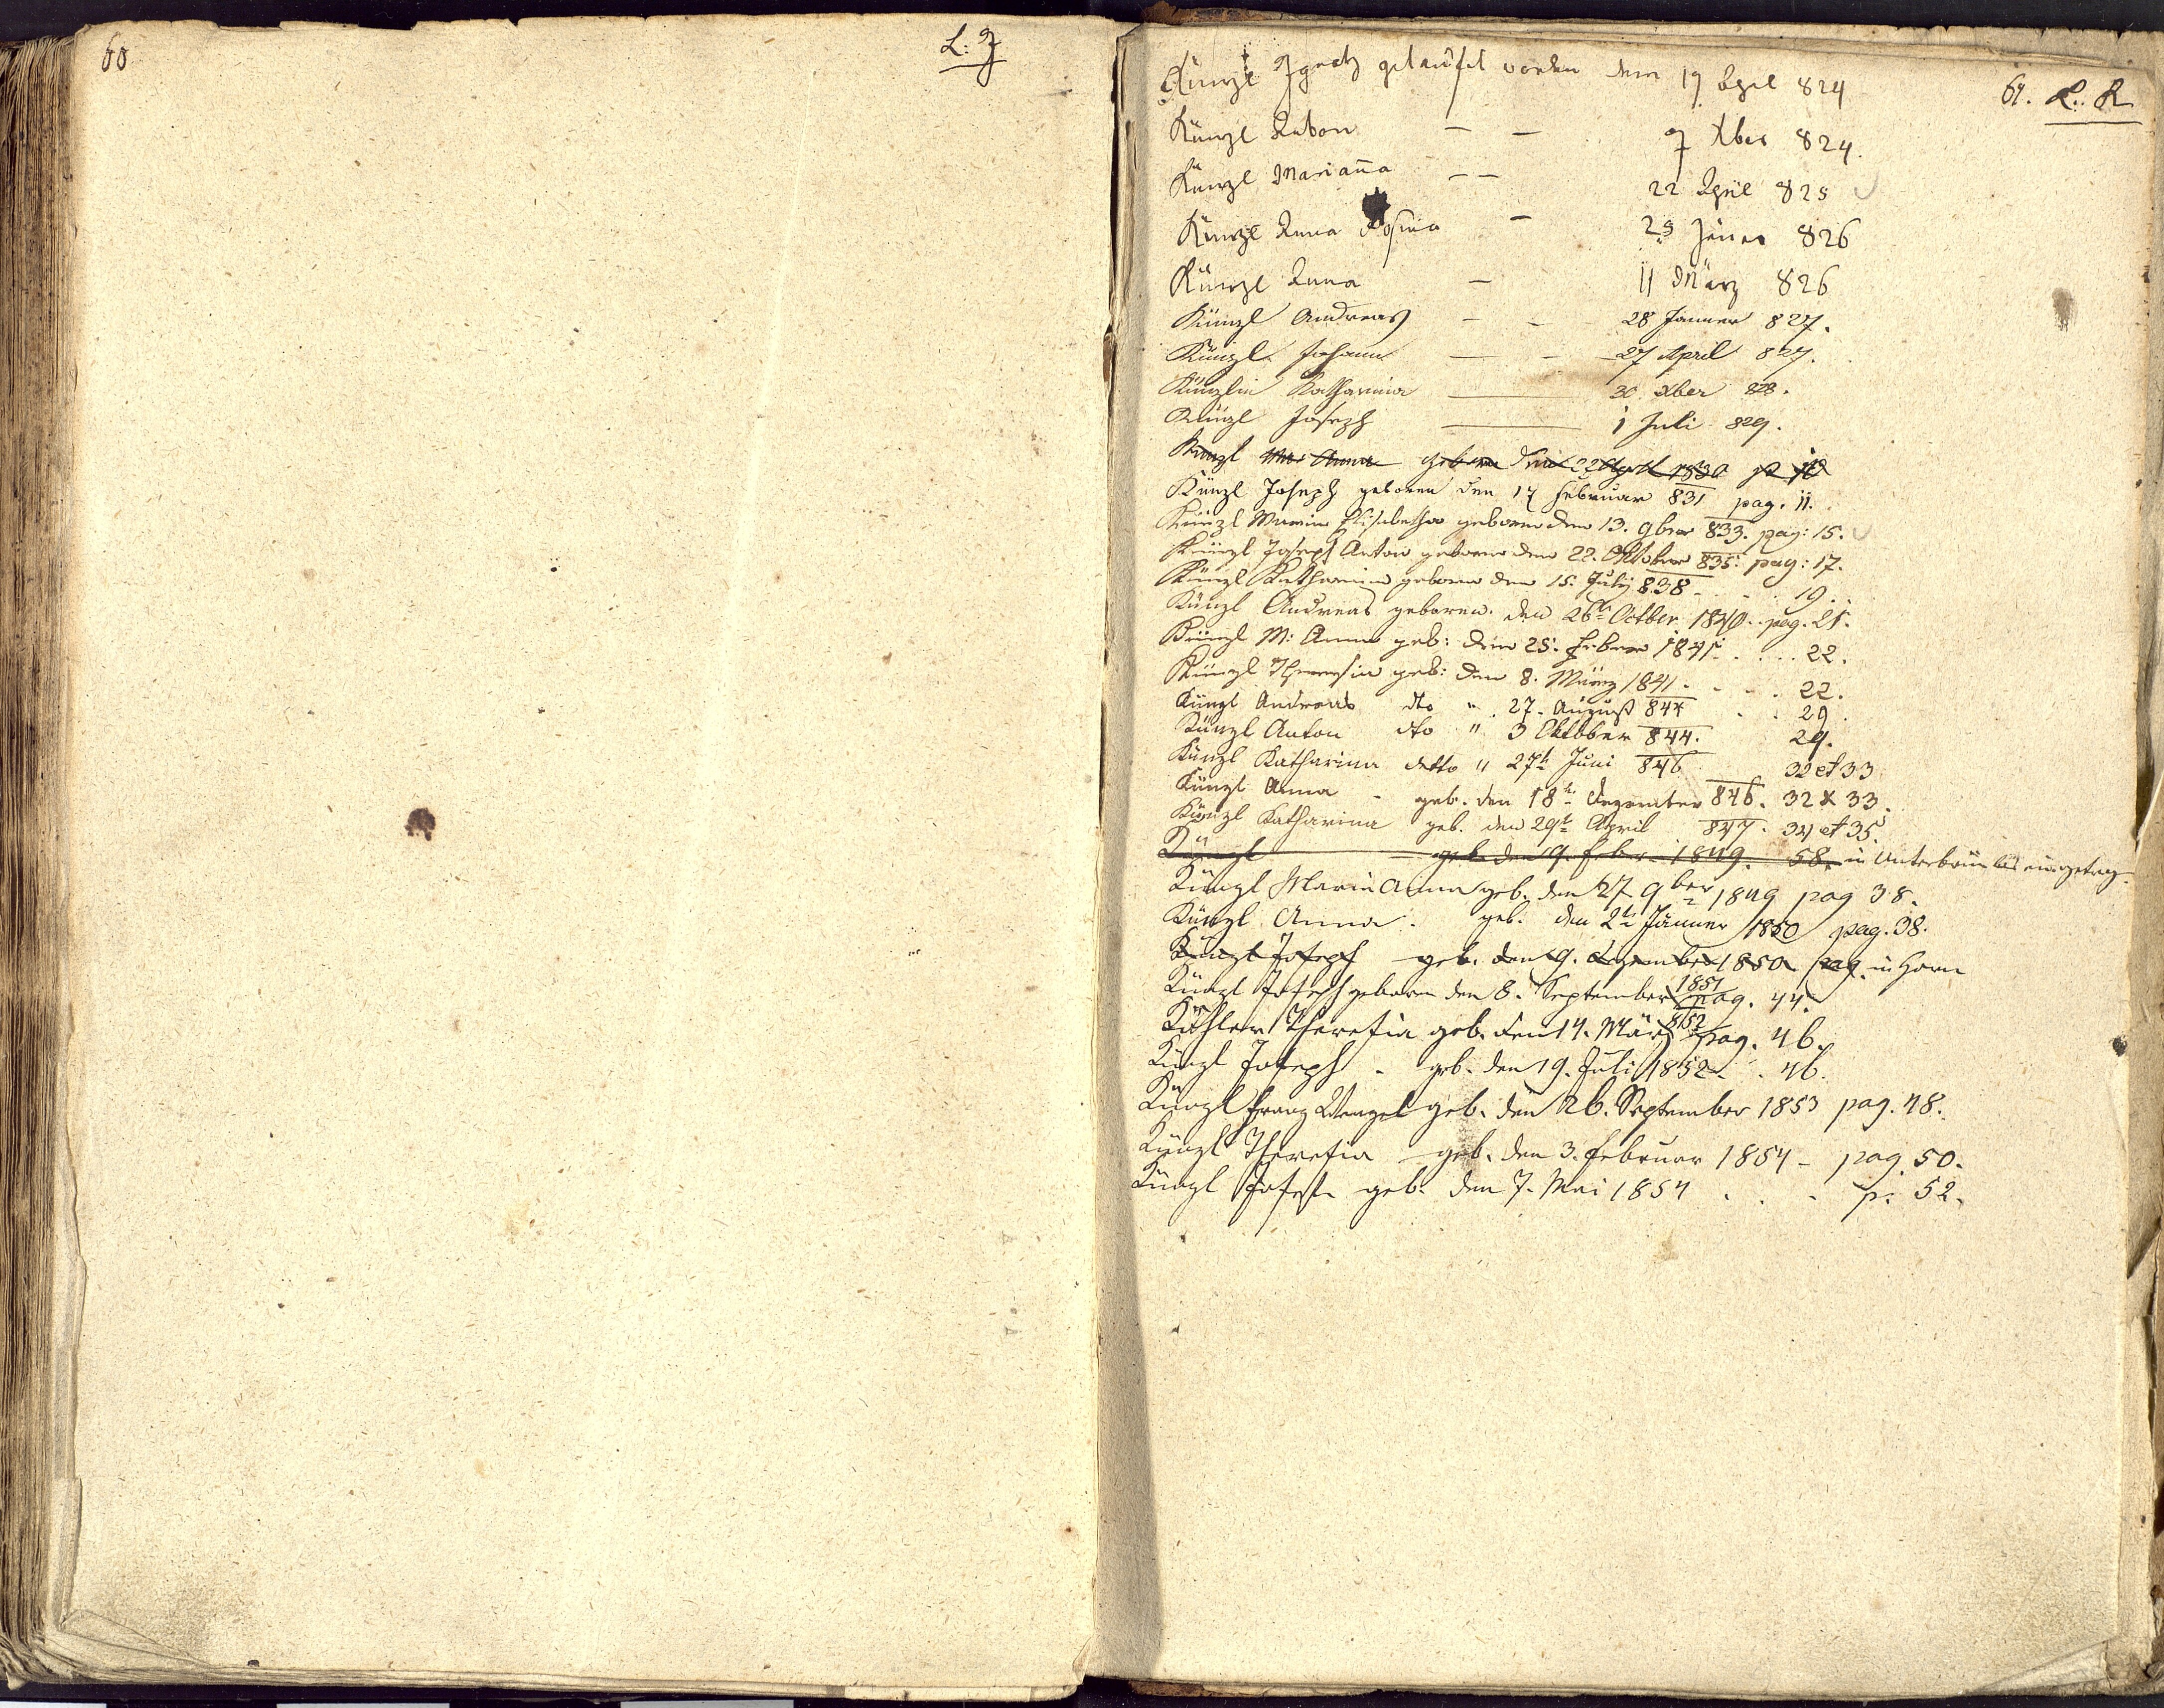 60
L: J
61. L: K
Künzl Ignatz getaufet worden den 19 April 824
Künzl Anton — — 9 Xber 824.
Künzl Mariana — — 22 April 825
Künzl Anna Rosina — 23 Jener 826
Künzl Anna — 11 März 826
Künzl Andreas — — 28 Janner 827.
Künzl Johann — — 27 April 827.
Künzlin Katharina — 30 Xber 828.
Künzl Joseph — 1 Juli 829.
Künzl Mar Anna geboren den 22 April 1830 p 10
Künzl Joseph geboren den 17 Februar 831 pag. 11.
Künzl Maria Elisabetha geboren den 13. 9ber 833. pag: 15.
Künzl Joseph Anton geboren den 22. Oktober 835: pag: 17.
Künzl Katharina geboren den 15. July 838 - . . 19.
Künzl Andreas geboren den 26t Octber 1840. pag. 21.
Künzl M: Anna geb: den 25. Feber 1841. . . . 22.
Künzl Theresia geb: den 8. März 1841. . . . 22.
Künzl Andreas dto " 27. August 844 . . 29.
Künzl Anton dto " 3 Oktober 844. 29.
Künzl Katharina detto " 27t Juni 846 32 et 33
Künzl Anna - geb. den 18t Dezember 846. 32 & 33.
Künzl Katharina geb. den 29t April 847. 34 et 35
Künzl geb. den 9. Feber 1849. 58. in Unterbrün eingetrag.
Künzl Maria Anna geb. den 27 9ber 1849 pag 38.
Künzl Anna. geb. den 2t Jänner 1850 pag. 38.
Künzl Joseph geb. den 9. Dezember 1850 pag. in Horn
Künzl Joseph geboren den 8. September 1851 pag. 44.
Köhler Theresia geb. den 14. März 852 pag. 46.
Künzl Joseph - geb. den 19. Juli 1852 . . 46.
Künzl Franz Wenzel geb. den 26. September 1853 pag. 48.
Künzl Theresia geb. den 3. Februar 1854 - pag. 50.
Künzl Josef geb. den 7. Mai 1854 . . . p. 52.